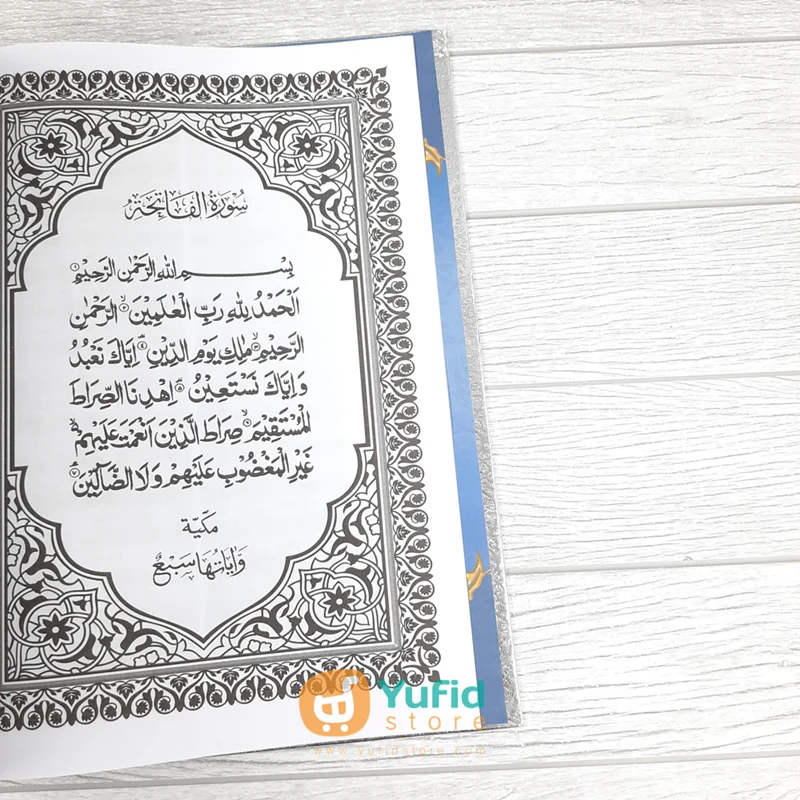 سُورَةُ الْفَاتِحَةِ
بِسْمِ اللهِ الرَّحْمٰنِ الرَّحِيْمِ ۝١
اَلْحَمْدُ لِلّٰهِ رَبِّ الْعٰلَمِيْنَ ۝٢ الرَّحْمٰنِ
الرَّحِيْمِ ۝٣ مٰلِكِ يَوْمِ الدِّيْنِ ۝٤ اِيَّاكَ نَعْبُدُ
وَاِيَّاكَ نَسْتَعِيْنُ ۝٥ اِهْدِنَا الصِّرَاطَ
الْمُسْتَقِيْمَ ۝٦ صِرَاطَ الَّذِيْنَ اَنْعَمْتَ عَلَيْهِمْ
غَيْرِ الْمَغْضُوْبِ عَلَيْهِمْ وَلَا الضَّآلِّيْنَ ۝٧
مَكِّيَّة
وَاٰيَاتُهَا سَبْعٌ
Yufid
store
www.yufidstore.com